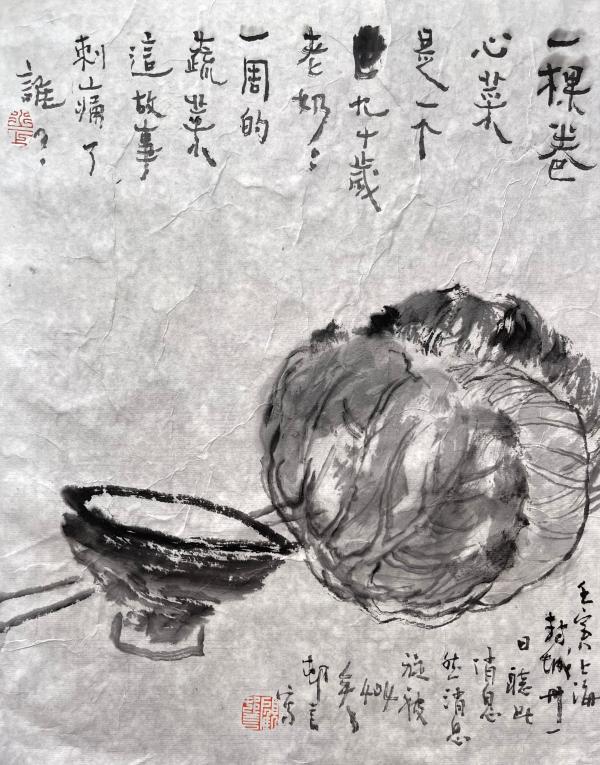 一棵卷
心菜
是一个
九十歲
老奶
一周的
蔬菜
這故事
刺痛了
誰？
壬寅上海
封城卅一
日聽此
消息
然消息
旋被
404
寫